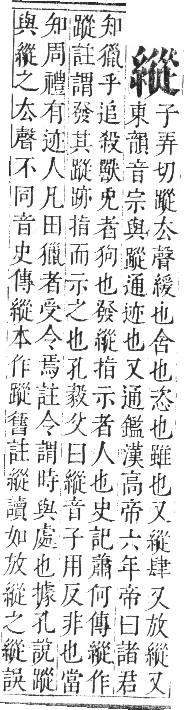 縱
子弄切蹤去聲緩也舍也恣也雖也又縱肆又放縱又
東韻音宗與蹤通迹也又通鑑漢高帝六年帝曰諸君
知獵乎追殺獸兎者狗也發縱指示者人也史記蕭何傳縱作
蹤註謂發其蹤跡指而示之也孔毅父曰縱音子用反非也當
知周禮有迹人凡田獵者受令焉註令謂時與處也據孔說蹤
與縱之去聲不同音史傳縱本作蹤舊註縱讀如放縱之縱誤